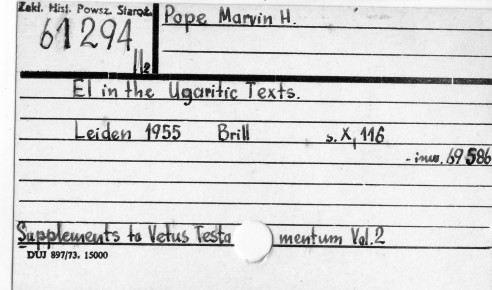 Zakł. Hist. Powsz. Staroż.
Pope Marvin H.
61294
II2
El in the Ugaritic Texts.
Leiden 1955 Brill s. X, 116
- inw. 69586
Supplements to Vetus Testa mentum Vol. 2
DUJ 897/73. 15000